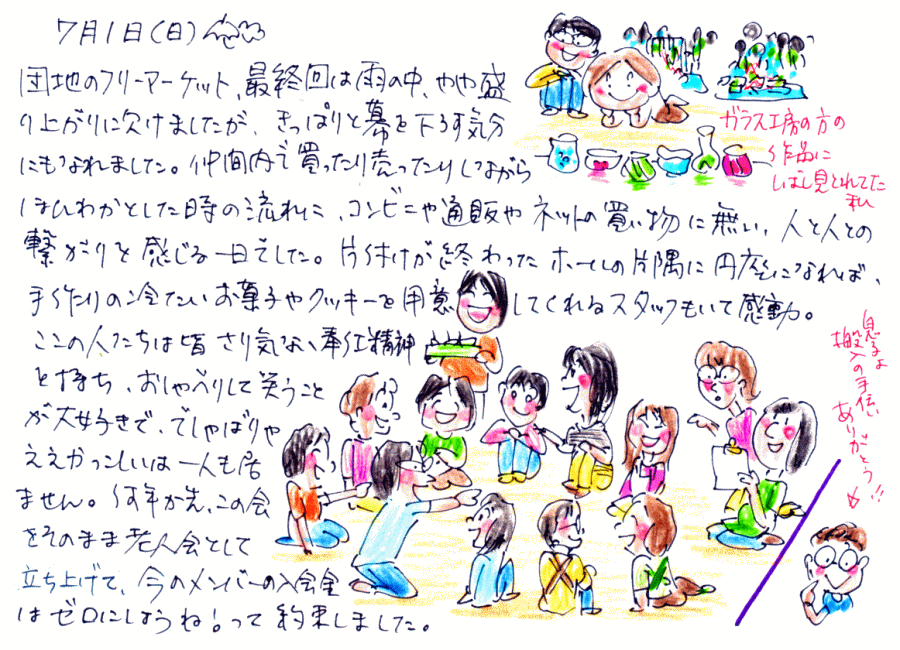 7月1日(日)
団地のフリーマーケット、最終回は雨の中、やや盛
り上がりに欠けましたが、きっぱりと幕を下ろす気分
にもなれました。仲間内で買ったり売ったりしながら
ほんわかとした時の流れに、コンビニや通販やネットの買い物に無い、人と人との
繋がりを感じる一日でした。片付けが終わったホールの片隅に円座になれば、
手作りの冷たいお菓子やクッキーを用意してくれるスタッフもいて感動。
ここの人たちは皆さり気ない奉仕精神
を持ち、おしゃべりして笑うこと
が大好きで、でしゃばりや
ええかっこしいは一人も居
ません。何年か先、この会
をそのまま老人会として
立ち上げて、今のメンバーの入会金
はゼロにしようね!って約束しました。
ガラス工房の方の
作品に
しばし見とれてた
私
息子よ
搬入の手伝い
ありがとう!!